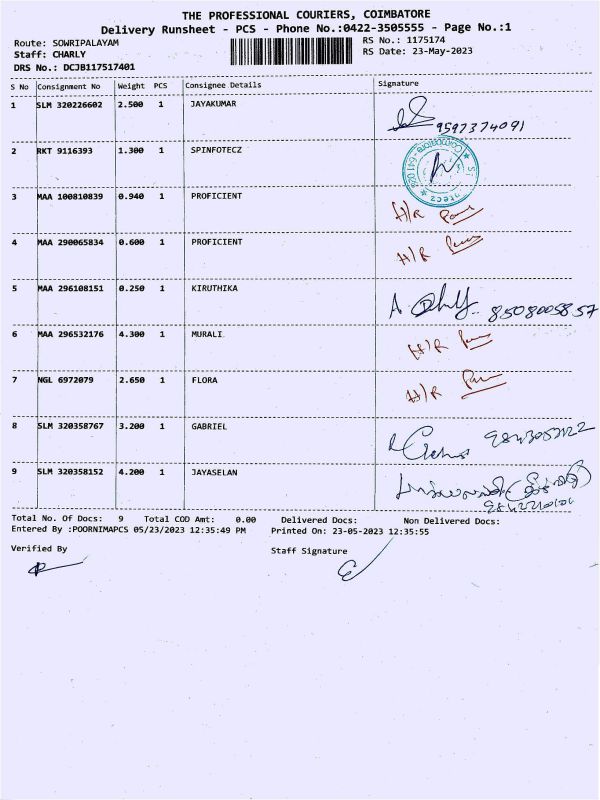 THE PROFESSIONAL COURIERS, COIMBATORE
Delivery Runsheet - PCS - Phone No.:0422-3505555 - Page No.:1
Route: SOWRIPALAYAM
Staff: CHARLY
DRS No.: DCJB117517401
RS No.: 1175174
RS Date: 23-May-2023
S No Consignment No Weight PCS Consignee Details Signature
1 SLM 320226602 2.500 1 JAYAKUMAR
9597374091
2 RKT 9116393 1.300 1 SPINFOTECZ
Coimbatore - 641 028
3 MAA 100810839 0.940 1 PROFICIENT H/R
4 MAA 290065834 0.600 1 PROFICIENT H/R
5 MAA 296108151 0.250 1 KIRUTHIKA 8508005857
6 MAA 296532176 4.300 1 MURALI H/R
7 NGL 6972079 2.650 1 FLORA H/R
8 SLM 320358767 3.200 1 GABRIEL
9 SLM 320358152 4.200 1 JAYASELAN
Total No. Of Docs: 9 Total COD Amt: 0.00 Delivered Docs: Non Delivered Docs:
Entered By :POORNIMAPCS 05/23/2023 12:35:49 PM Printed On: 23-05-2023 12:35:55
Verified By Staff Signature